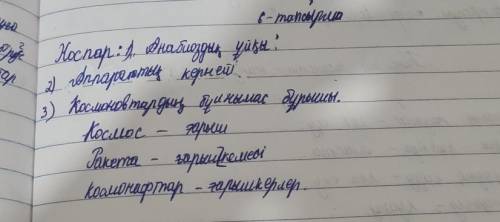 6-тапсырма
Жоспар: 1. Анабиоздық ұйқы!
2) Аппараттың керней.
3) Космонавтардың бұлнымас бұрышы.
Космос – ғарыш
Ракета – ғарыш кемесі
Космонафттар – ғарышкерлер.